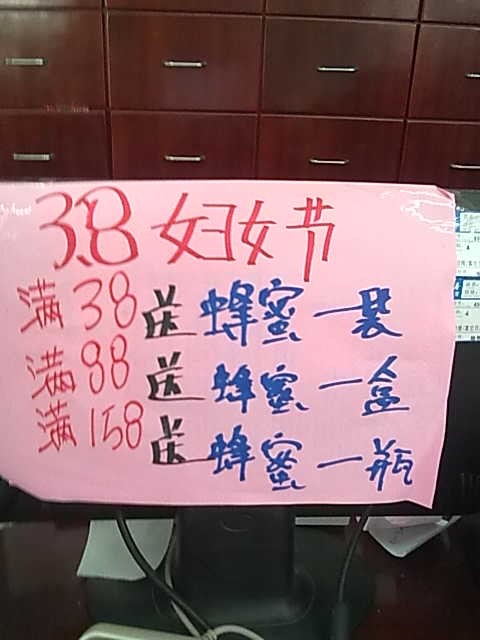 3.8妇女节
满38送蜂蜜一袋
满88送蜂蜜一盒
满158送蜂蜜一瓶